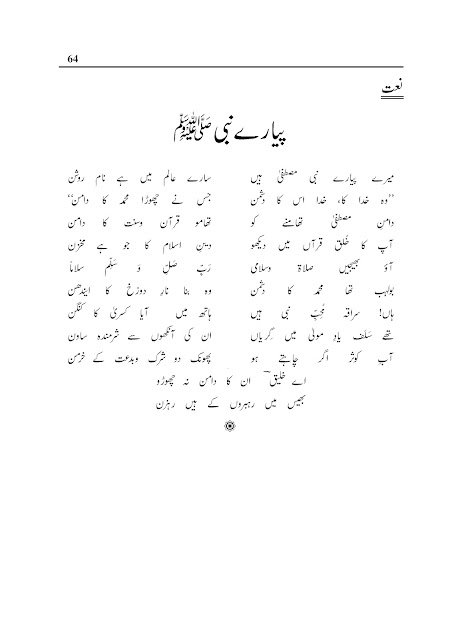 64
نعت
پیارے نبی ﷺ
میرے پیارے نبی مصطفیٰ ہیں سارے عالم میں ہے نام روشن
”وہ خدا کا، خدا اس کا دشمن جس نے چھوڑا محمد کا دامن“
دامن مصطفیٰ تھامنے کو تھامو قرآن وسنت کا دامن
آپ کا خُلق قرآں میں دیکھو دین اسلام کا جو ہے مخزن
آؤ بھیجیں صلاۃ وسلامی رَبِّ صَلِّ وَ سَلِّم سلاماً
بولہب تھا محمد کا دشمن وہ بنا نارِ دوزخ کا ایندھن
ہاں! سراقہ مُحبّ نبی ہیں ہاتھ میں آیا کسریٰ کا کنگن
تھے سَلَف یادِ مولیٰ میں گریاں ان کی آنکھوں سے شرمندہ ساون
آب کوثر اگر چاہتے ہو پھونک دو شرک وبدعت کے خرمن
اے خلیقؔ ان کا دامن نہ چھوڑو
بھیس میں رہبروں کے ہیں رہزن